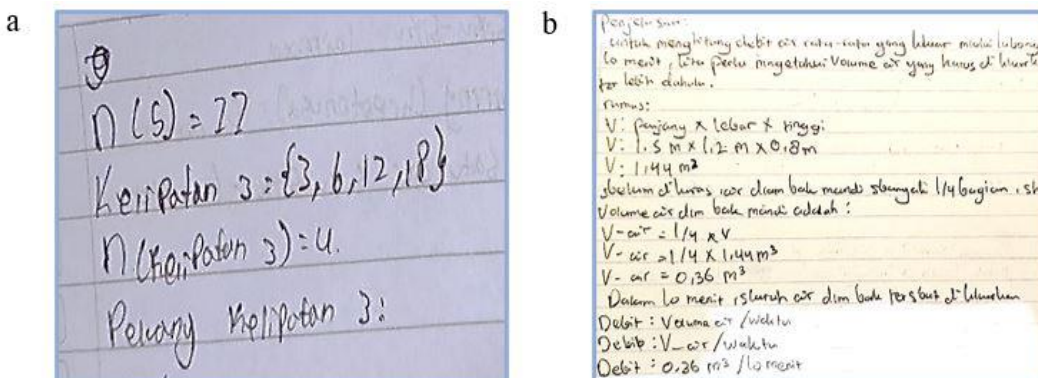 a
n(S) = 77
Kelipatan 3 = {3, 6, 12, 18}
n(Kelipatan 3) = 4.
Peluang Kelipatan 3 :
b
Penjelasan:
untuk menghitung debit air rata-rata yang keluar melalui lubang
10 menit, kita perlu mngetahui Volume air yang harus di
ter lebih dahulu.
rumus:
V: Panjang x lebar x tinggi
V: 1,5 m x 1,2 m x 0,8 m
V: 1,44 m³
sbelum di kuras, air dlam bak mandi sbanyak 1/4 bagian,
Volume air dlm bak mandi adalah :
V-air = 1/4 x V
V-air = 1/4 x 1,44 m³
V-air = 0,36 m³
Dalam 10 menit, sluruh air dlm bak tersbut di kluarkan
Debit : Volume air / waktu
Debit : V_air / waktu
Debit : 0,36 m³ / 10 menit